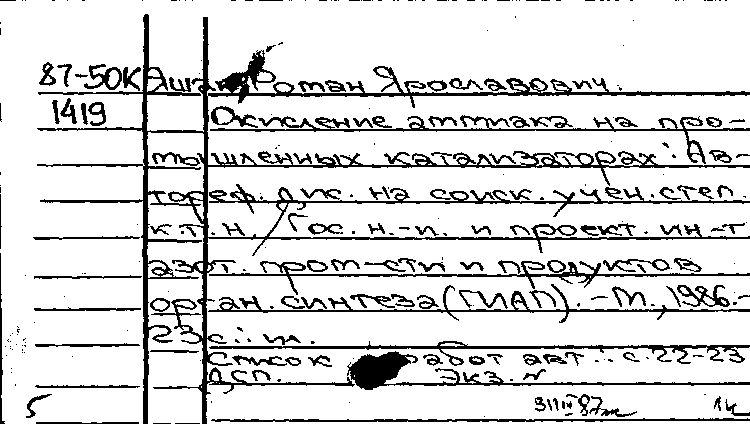 87-50К Роман Ярославович.
1419 Окисление аммиака на про-
мышленных катализаторах: Ав-
тореф. дис. на соиск. учен. степ.
к.т.н. / Гос. н.-и. и проект. ин-т
азот. пром-сти и продуктов
орган. синтеза (ГИАП). - М., 1986.-
23 с.: ил.
Список работ авт.: с. 22-23
ДСП. Экз. N
5